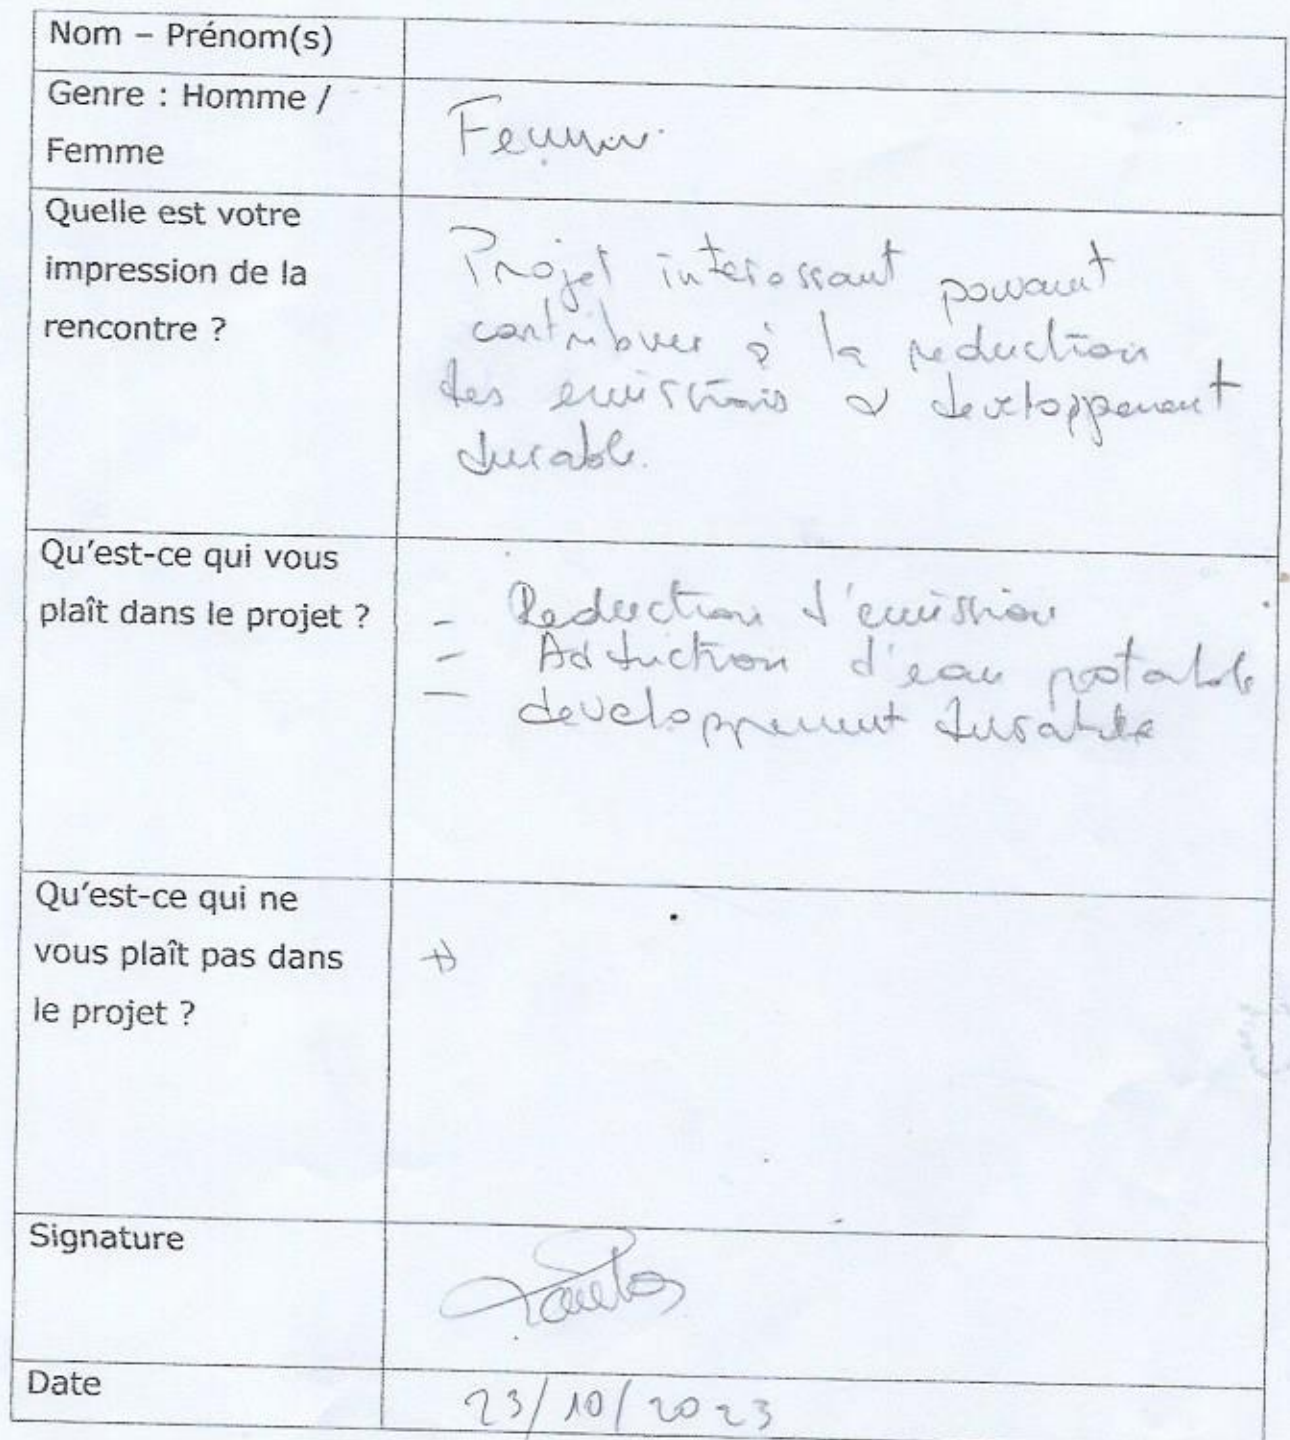 Nom – Prénom(s)
Genre : Homme /
Femme
Femme
Quelle est votre
impression de la
rencontre ?
Projet interessant pouvant
contribuer à la reduction
des emissions & developpement
durable.
Qu'est-ce qui vous
plaît dans le projet ?
- Reduction d'emission
- Adduction d'eau potable
- developpement durable
Qu'est-ce qui ne
vous plaît pas dans
le projet ?
Signature
Date
23/10/2023